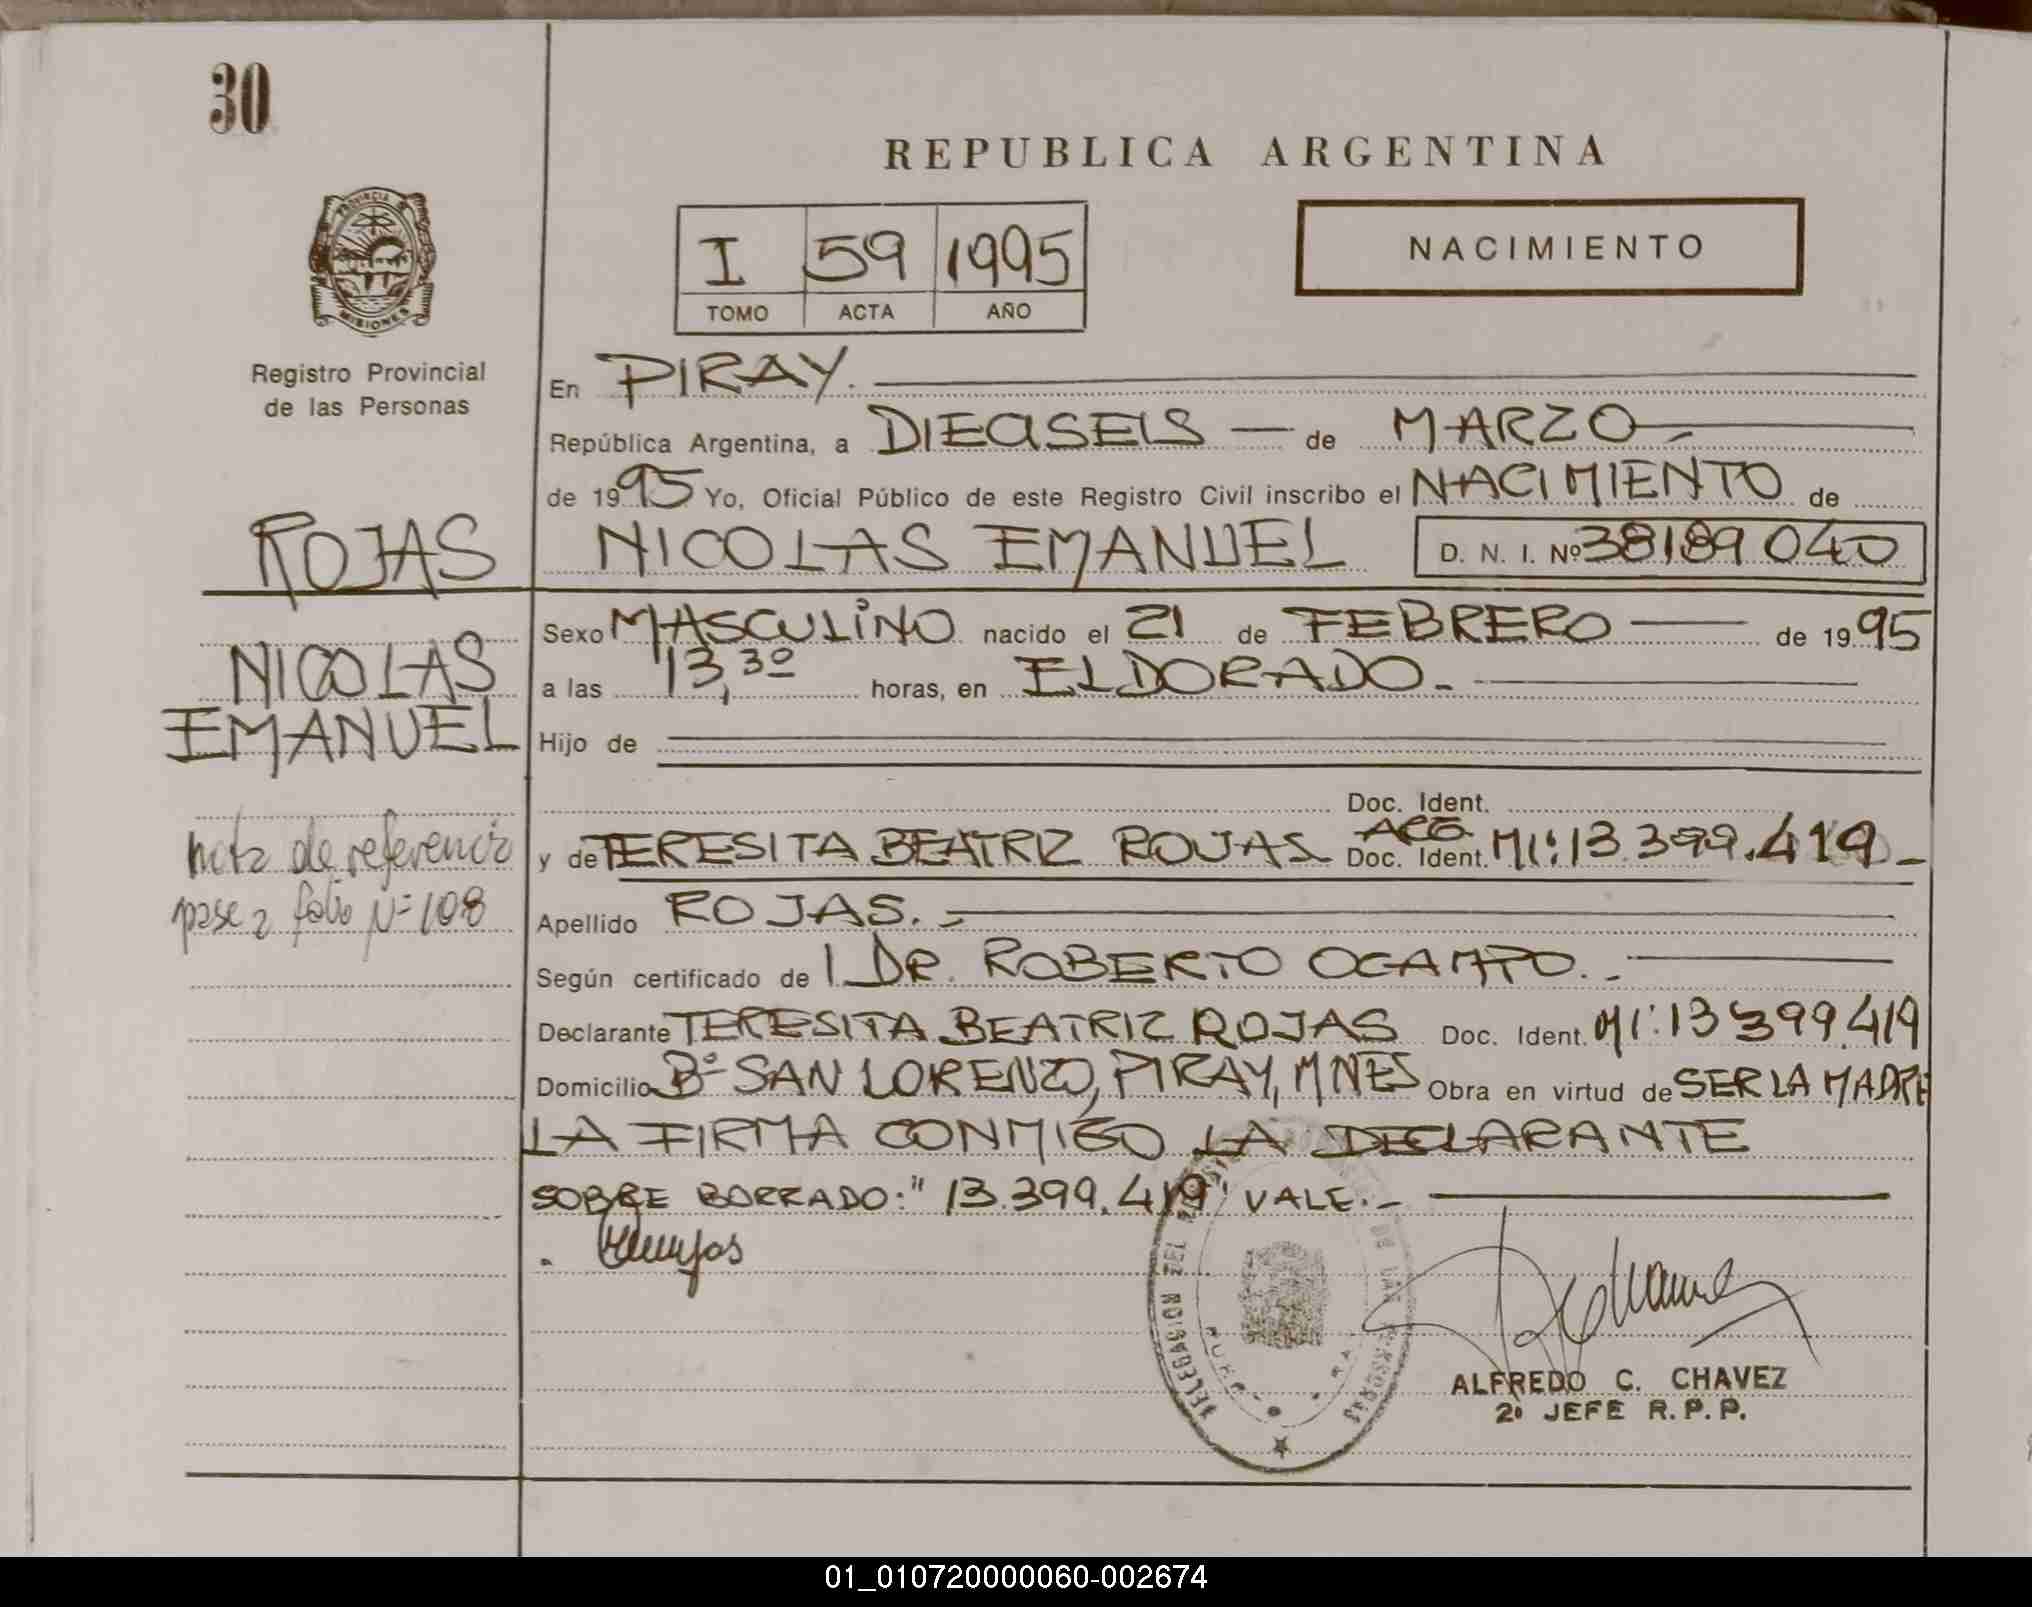 30
REPUBLICA ARGENTINA
PROVINCIA DE
MISIONES
I 59 1995
TOMO ACTA AÑO
NACIMIENTO
Registro Provincial
de las Personas
En PIRAY.
República Argentina, a DIECISEIS — de MARZO
de 1995 Yo, Oficial Público de este Registro Civil inscribo el NACIMIENTO de
ROJAS NICOLAS EMANUEL D. N. I. Nº 38189040
NICOLAS
EMANUEL
nota de referencia
pase a folio Nº 108
Sexo MASCULINO nacido el 21 de FEBRERO — de 1995
a las 13,30 horas, en ELDORADO.-
Hijo de
Doc. Ident.
y de TERESITA BEATRIZ ROJAS ARG Doc. Ident. MI: 13.399.419-
Apellido ROJAS.-
Según certificado de l DR. ROBERTO OCAMPO.-
Declarante TERESITA BEATRIZ ROJAS Doc. Ident. MI: 13 399.419
Domicilio Bº SAN LORENZO, PIRAY, MNES Obra en virtud de SER LA MADRE
LA FIRMA CONMIGO LA DECLARANTE
SOBRE BORRADO: "13.399.419" VALE.-
DELEGACION DEL DE LAS PERSONAS
ALFREDO C. CHAVEZ
2º JEFE R.P.P.
01_010720000060-002674